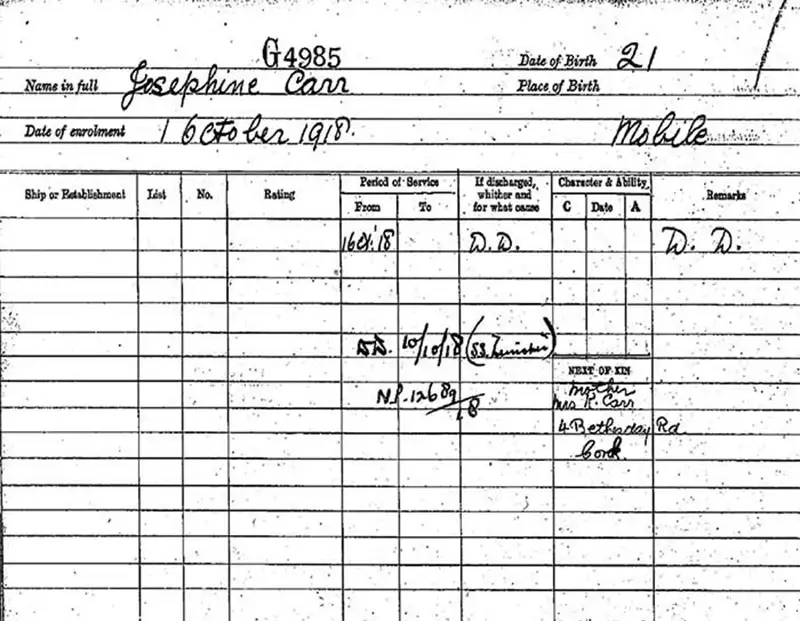 G4985
Date of Birth 21
Name in full Josephine Carr
Place of Birth
Date of enrolment 1 October 1918.
Mobile
Ship or Establishment List No. Rating Period of Service If discharged, whither and for what cause Character & Ability Remarks
From To C Date A
1 Oct. '18 D.D. D. D.
D.D. 10/10/18 (S.S. Leinster)
NEXT OF KIN
N.P. 12689/18 Mother
Mrs K. Carr
4 Bethesday Rd
Cork